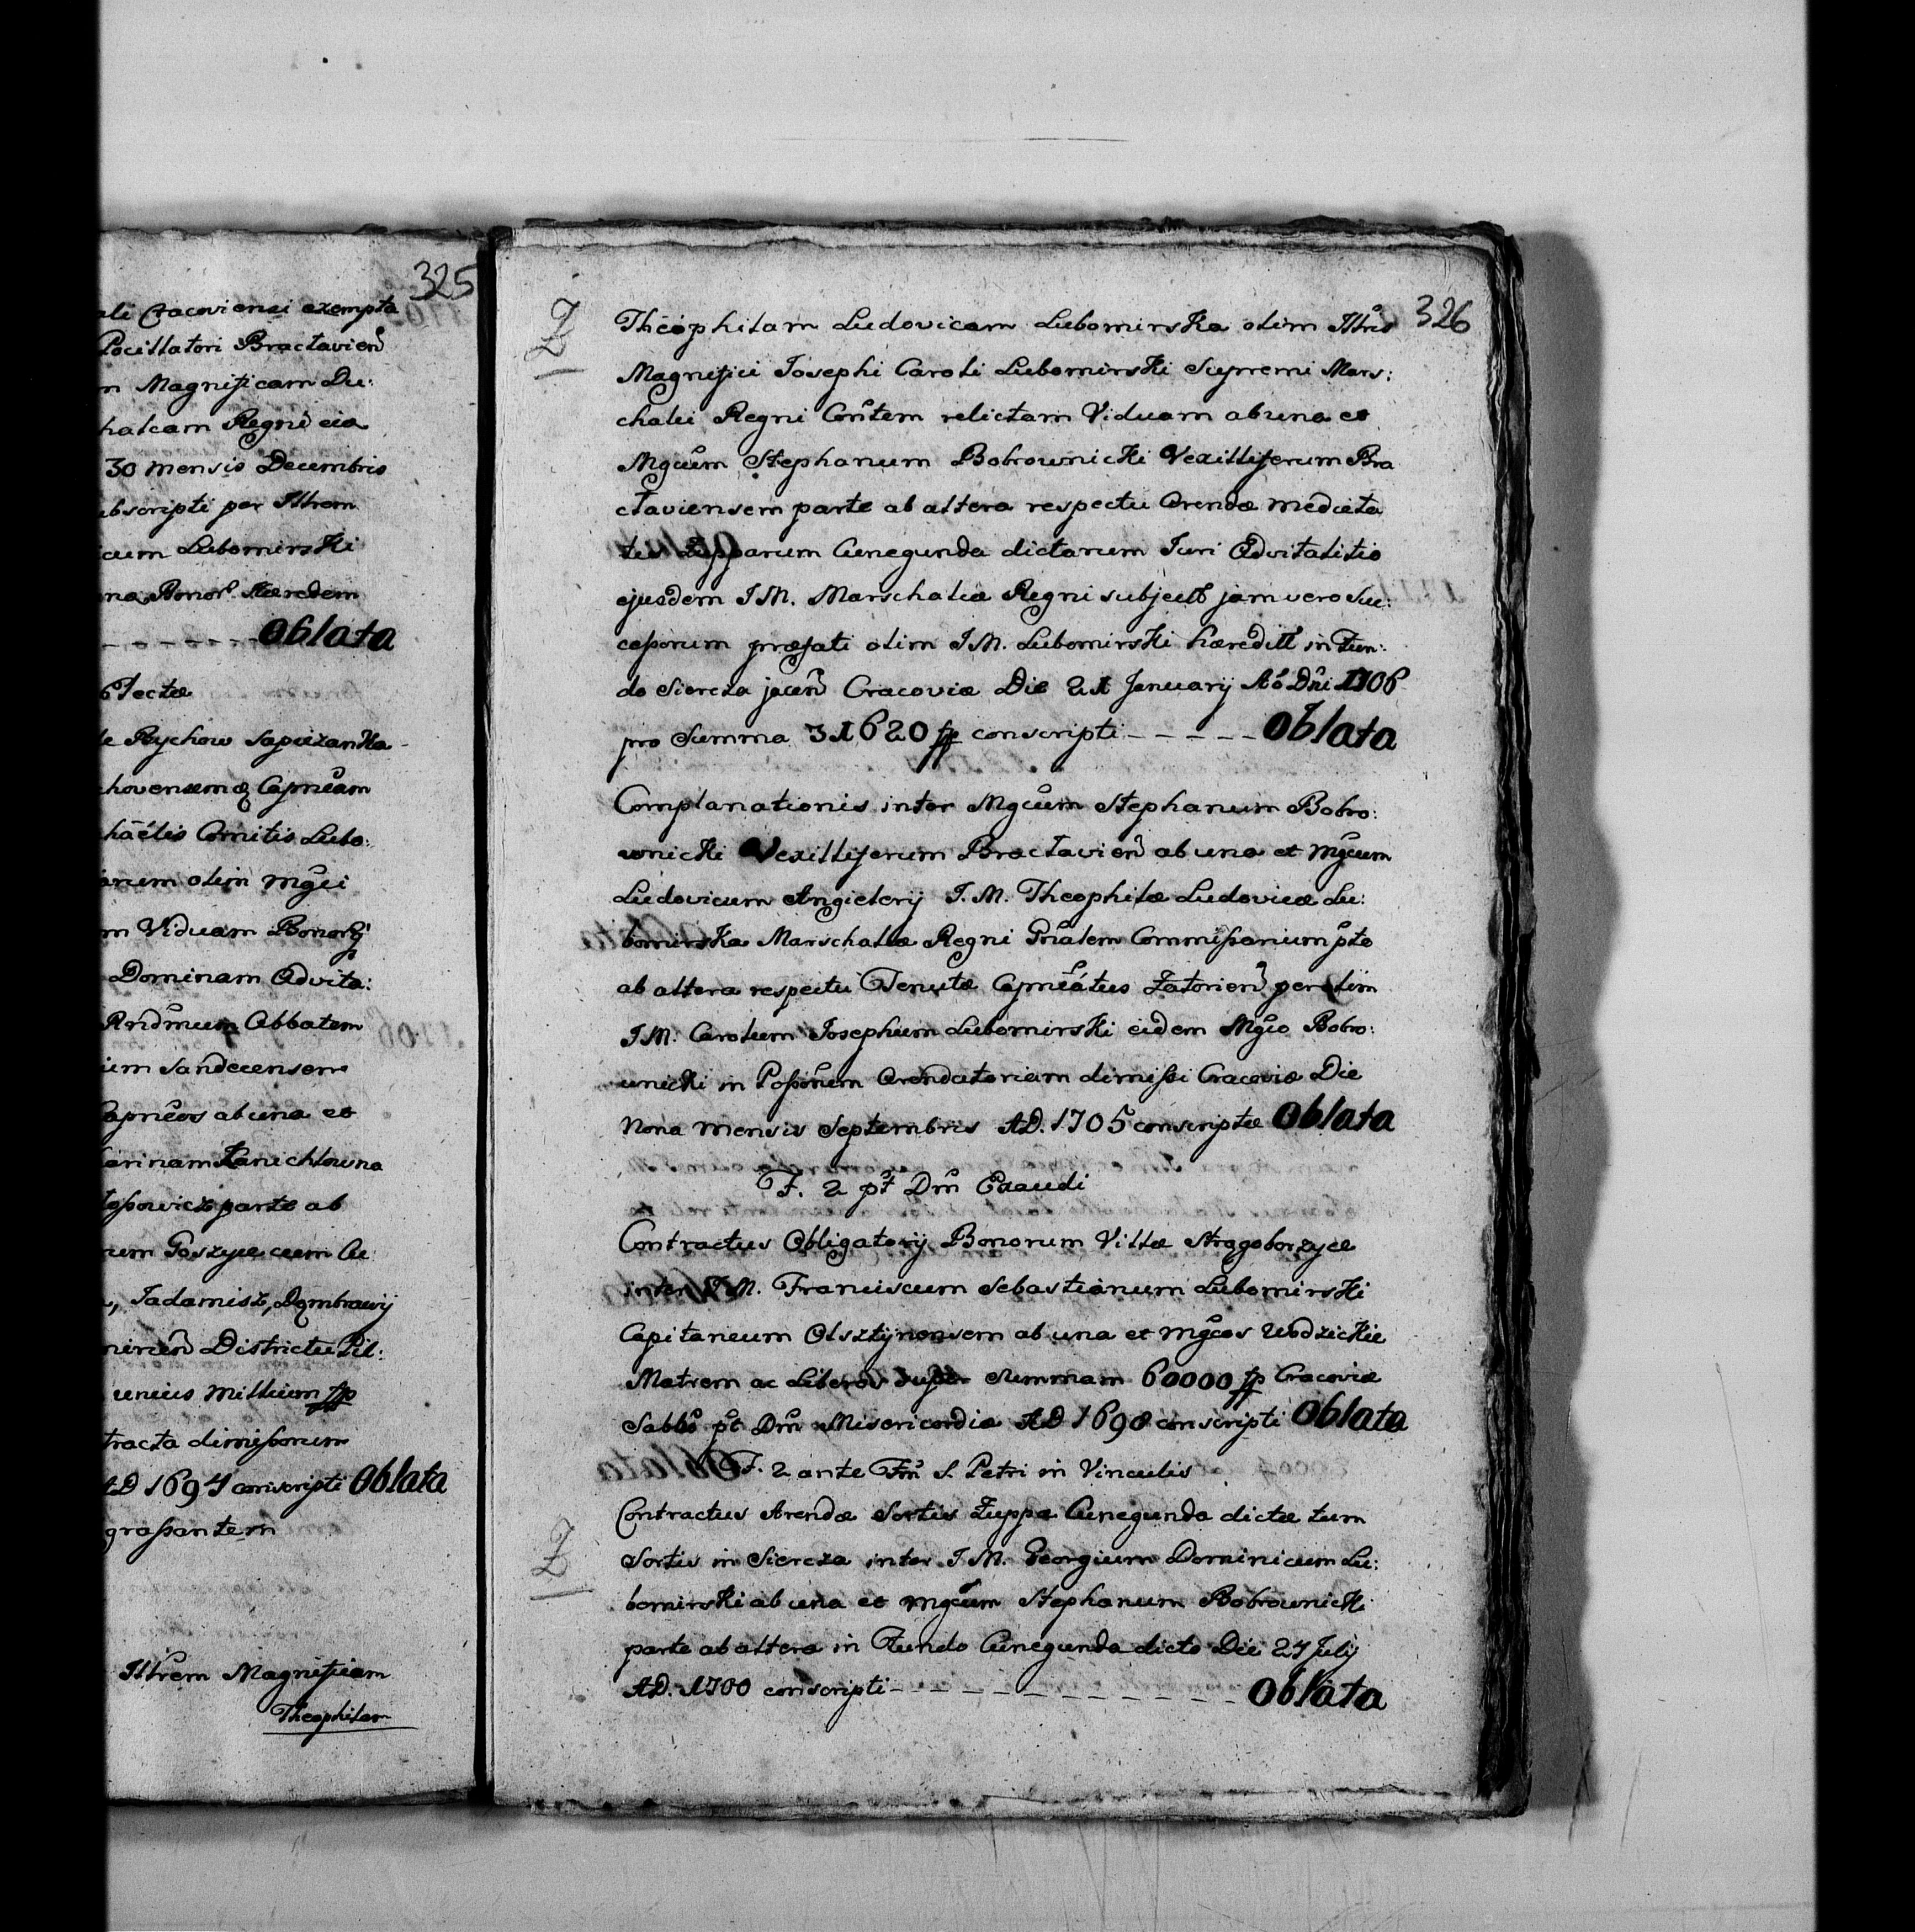 325
ali Cracoviensi exempta
Pocillatori Braclavien
m Magnificam Du:
halcam Regni eia
30 mensis Decembris
bscripti per Illrem
cum Lubomirski
na Bonor Hæredem
Oblata
lectæ
de Rychow Sapiezanka
chovensemq Capneam
haëlis Comitis Lubo:
anum olim Mgci
m Viduam Bonorq
Dominam Advita:
Rndmum Abbatem
um Sandecensem
Capneos ab una et
arinam Lanichlowna
parte ab
num Goszyce cum At
, Jadamisz, Dąmbrawy
Districtu Pil:
unius Millium fp
tracta dimissorum
AD 1694 conscripti Oblata
grassantem
Illrem Magnificam
Theophilam
326
Z
Theophilam Ludovicam Lubomirska olim Illris
Magnifici Josephi Caroli Lubomirski Supremi Mars:
chalci Regni Contem relictam Viduam ab una et
Mgcum Stephanum Bobrownicki Vexilliferum Bra
claviensem parte ab altera respectu Arendæ medieta
tis Zupparum Cunegunda dictarum Juri Advitalitio
ejusdem I.M. Marschalcæ Regni subject jam vero Suc:
cessorum præfati olim I.M. Lubomirski hæredit in Fun:
do Siercza jacen Cracoviæ Die 21 January Ao Dni 1706
pro Summa 31620 fp conscripti – – – – – Oblata
Complanationis inter Mgcum Stephanum Bobro:
wnicki Vexilliferum Braclavien ab una et Mgcum
Ludovicum Angielerij I.M. Theophilæ Ludovicæ Lu:
bomirska Marschalcæ Regni Gnalem Commissarium pte
ab altera respectu Tenutæ Capneatus Zatorien per olim
I.M. Carolum Josephum Lubomirski eidem Mgco Bobro:
wnicki in Possonem Arendatoriam dimissi Cracoviæ Die
Nona mensis Septembris AD. 1705 conscriptæ Oblata
F. 2 pt Dm Exaudi
Contractus Obligatorij Bonorum Villæ Stręgoborzyce
inter I.M. Franciscum Sebastianum Lubomirski
Capitaneum Olsztynensem ab una et Mgcos Wodzickie
Matrem ac Liberos super Summam 60000 fp Cracoviæ
Sabbo pt Dm Misericordiæ AD 1698 conscripti Oblata
F. 2 ante Fm S. Petri in Vinculis
Z
Contractus Arendæ Sortis Zuppæ Cunegunda dictæ tum
Sortis in Siercza inter I.M. Georgium Dominicum Lu:
bomirski ab una et Mgcum Stephanum Bobrownicki
parte ab altera in Fundo Cunegunda dicto Die 27 July
AD. 1700 conscripti – – – – – – – – – – – Oblata